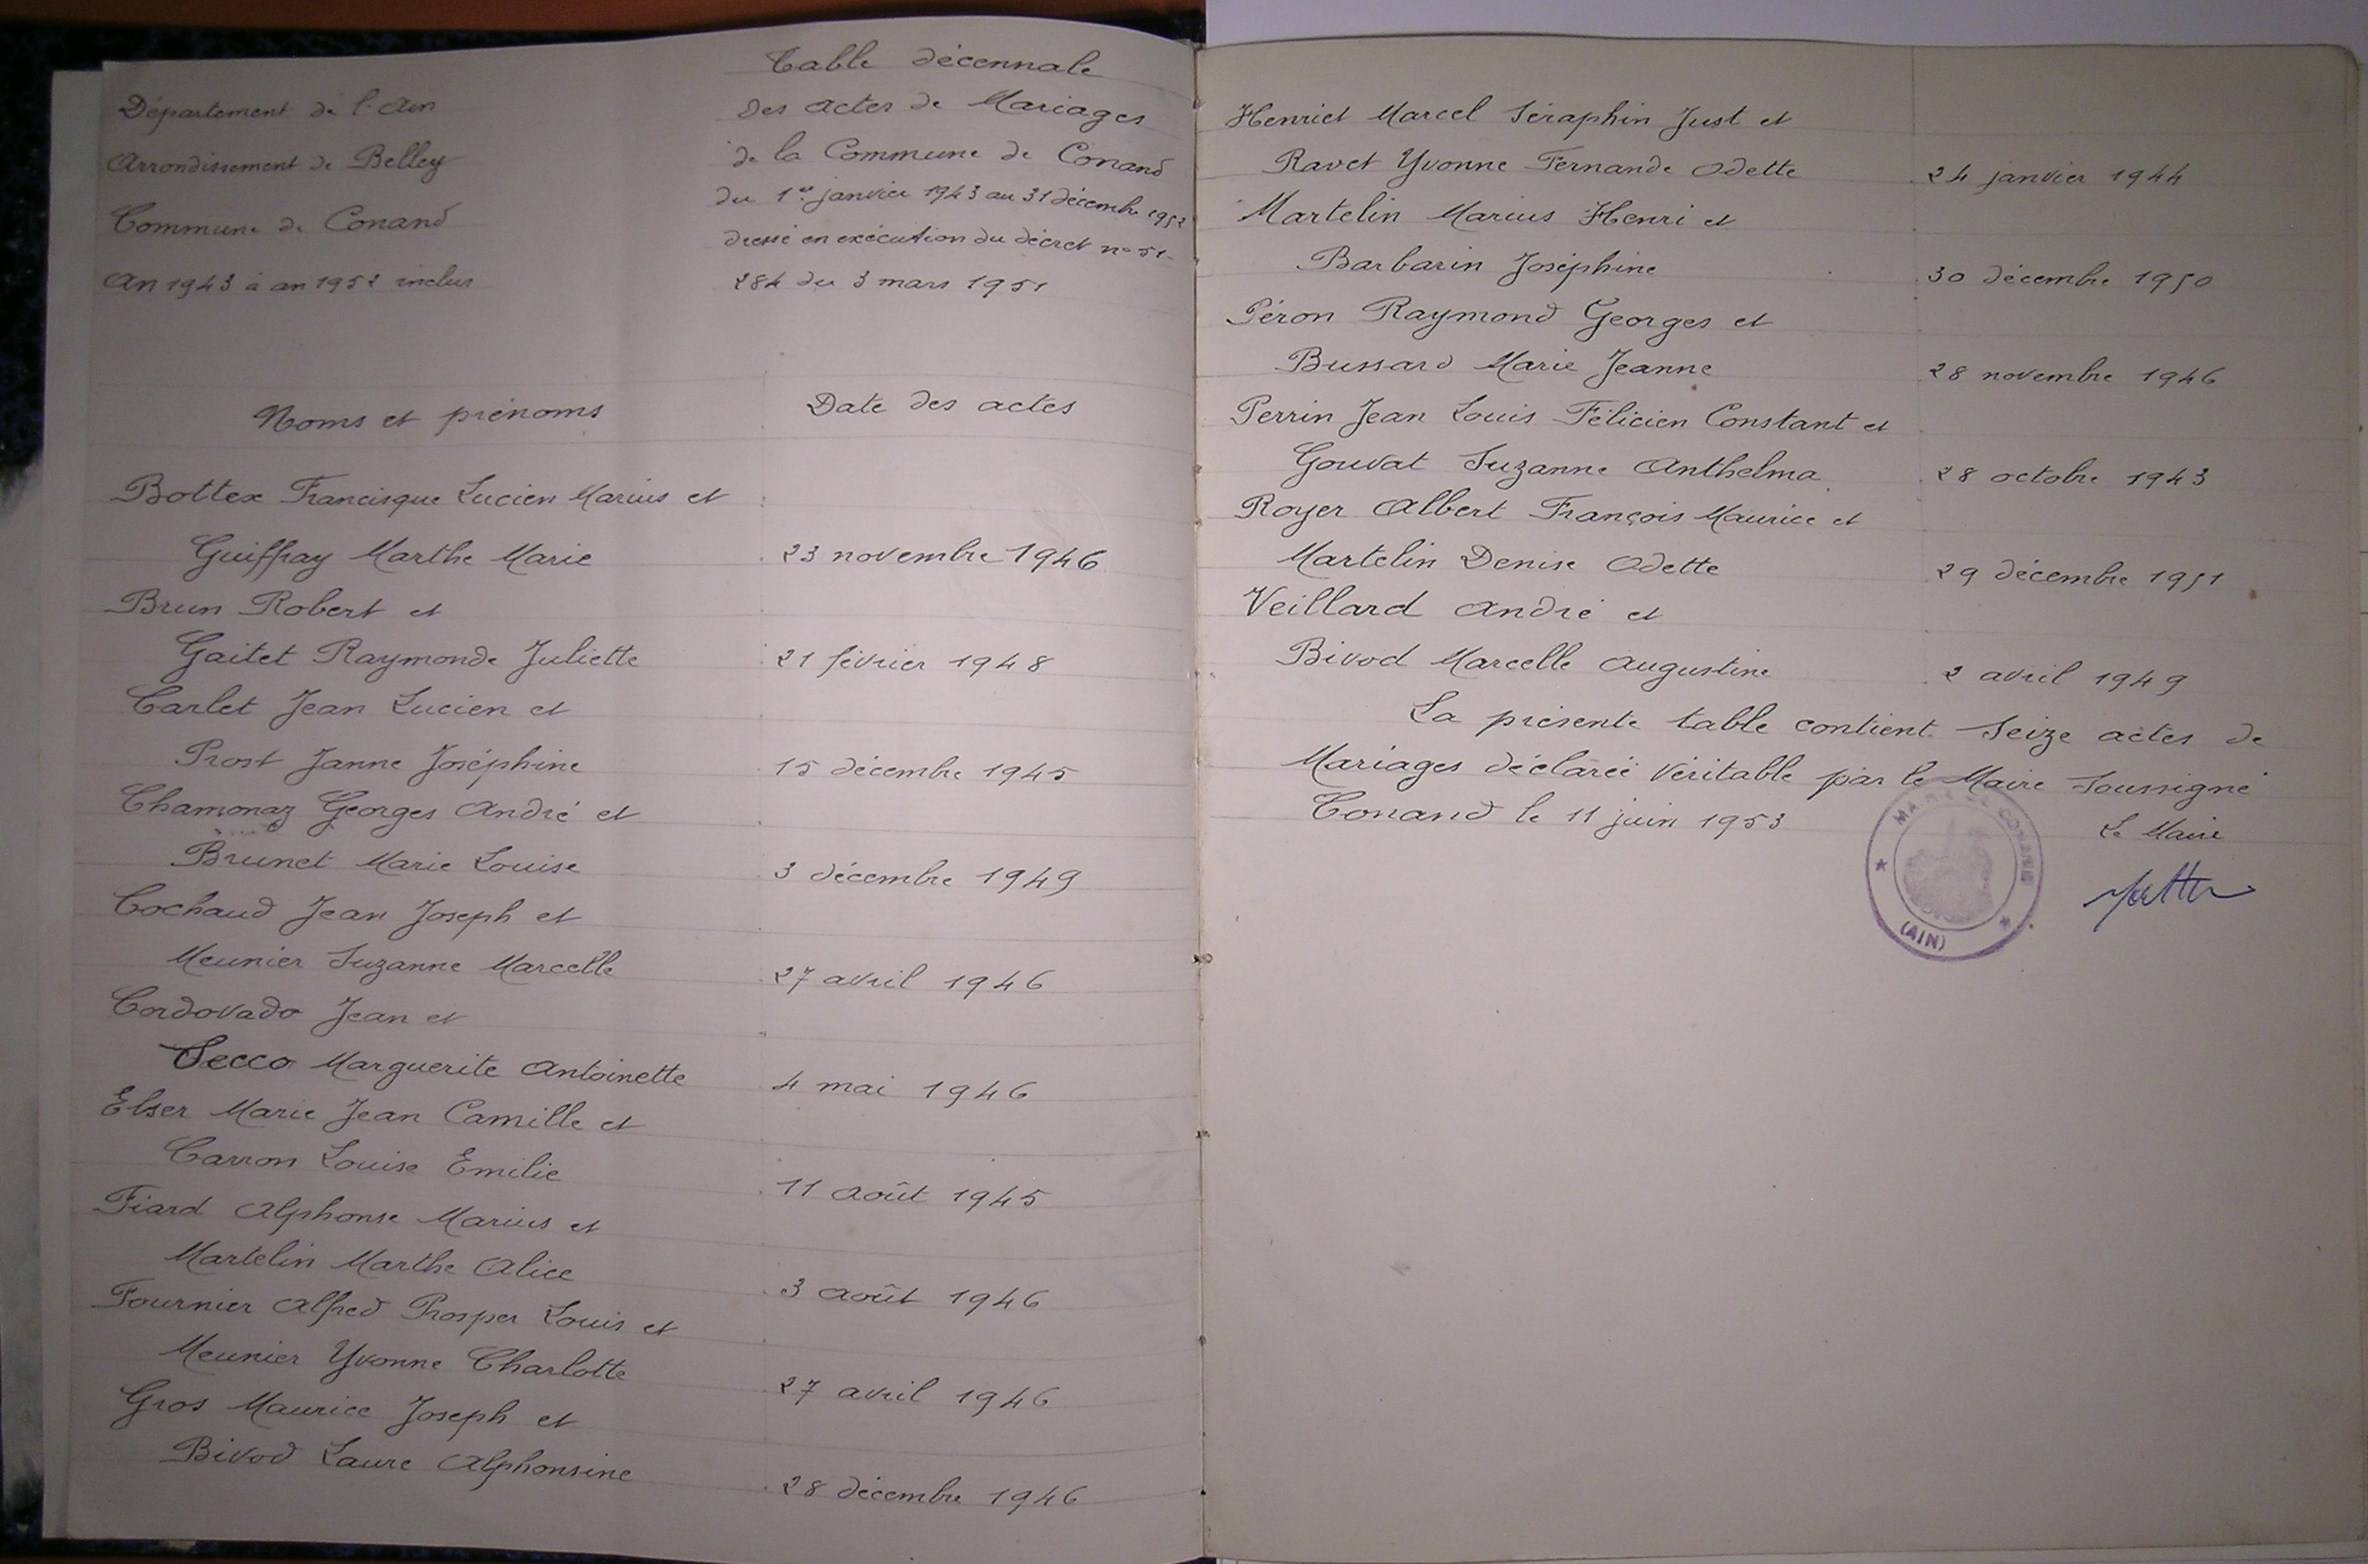 Département de l'Ain
Arrondissement de Belley
Commune de Conand
An 1943 à an 1952 inclus
Table décennale
Des actes de Mariages
de la Commune de Conand
du 1er janvier 1943 au 31 décembre 1952
dressé en exécution du décret n° 51-
284 du 3 mars 1951
Noms et prénoms Date des actes
Bottex Francisque Lucien Marius et
Guiffray Marthe Marie 23 novembre 1946
Brun Robert et
Gaitet Raymonde Juliette 21 février 1948
Carlet Jean Lucien et
Prost Janne Joséphine 15 décembre 1945
Chamonaz Georges André et
Brunet Marie Louise 3 décembre 1949
Cochaud Jean Joseph et
Meunier Suzanne Marcelle 27 avril 1946
Cordovado Jean et
Secco Marguerite Antoinette 4 mai 1946
Elser Marie Jean Camille et
Carron Louise Emilie 11 août 1945
Fiard Alphonse Marius et
Martelin Marthe Alice 3 août 1946
Fournier Alfred Prosper Louis et
Meunier Yvonne Charlotte 27 avril 1946
Gros Maurice Joseph et
Bivod Laure Alphonsine 28 décembre 1946
Henriet Marcel Séraphin Just et
Ravet Yvonne Fernande Odette 24 janvier 1944
Martelin Marius Henri et
Barbarin Joséphine 30 décembre 1950
Péron Raymond Georges et
Bussard Marie Jeanne 28 novembre 1946
Perrin Jean Louis Félicien Constant et
Gouvat Suzanne Anthelma 28 octobre 1943
Royer Albert François Maurice et
Martelin Denise Odette 29 décembre 1951
Veillard André et
Bivod Marcelle Augustine 2 avril 1949
La présente table contient Seize actes de
Mariages déclarée véritable par le Maire Soussigné
Conand le 11 juin 1953
Le Maire
MAIRIE DE CONAND
(AIN)